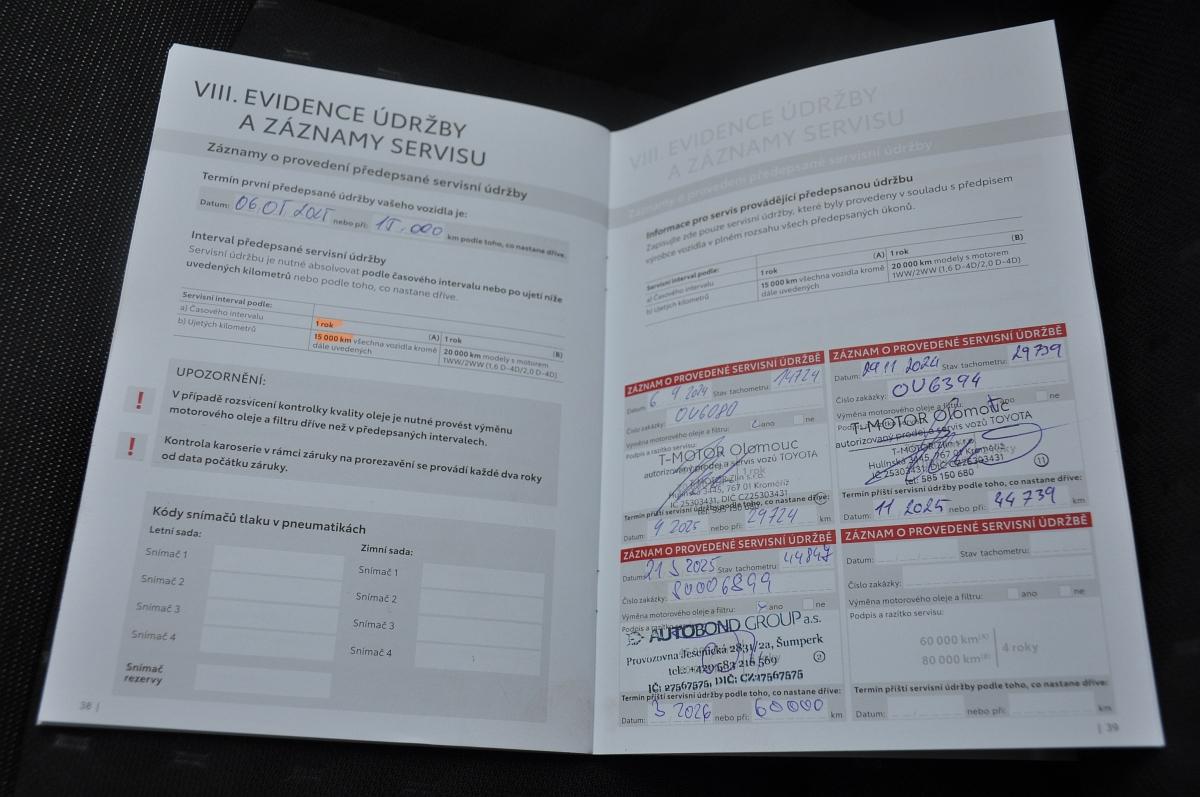 VIII. EVIDENCE ÚDRŽBY
A ZÁZNAMY SERVISU
Záznamy o provedení předepsané servisní údržby
Termín první předepsané údržby vašeho vozidla je:
Datum: 06.05.2025 nebo při: 15.000 km podle toho, co nastane dříve.
Interval předepsané servisní údržby
Servisní údržbu je nutné absolvovat podle časového intervalu nebo po ujetí níže
uvedených kilometrů nebo podle toho, co nastane dříve.
Servisní interval podle:
a) Časového intervalu 1 rok (A) 1 rok (B)
b) Ujetých kilometrů 15 000 km všechna vozidla kromě 20 000 km modely s motorem
dále uvedených 1WW/2WW (1,6 D-4D/2,0 D-4D)
UPOZORNĚNÍ:
! V případě rozsvícení kontrolky kvality oleje je nutné provést výměnu
motorového oleje a filtru dříve než v předepsaných intervalech.
! Kontrola karoserie v rámci záruky na prorezavění se provádí každé dva roky
od data počátku záruky.
Kódy snímačů tlaku v pneumatikách
Letní sada: Zimní sada:
Snímač 1 Snímač 1
Snímač 2 Snímač 2
Snímač 3 Snímač 3
Snímač 4 Snímač 4
Snímač
rezervy
38 |
VIII. EVIDENCE ÚDRŽBY
A ZÁZNAMY SERVISU
Záznamy o provedení předepsané servisní údržby
Informace pro servis provádějící předepsanou údržbu
Zapisujte zde pouze servisní údržby, které byly provedeny v souladu s předpisem
výrobce vozidla v plném rozsahu všech předepsaných úkonů.
Servisní interval podle: (A) (B)
a) Časového intervalu 1 rok 1 rok
b) Ujetých kilometrů 15 000 km všechna vozidla kromě 20 000 km modely s motorem
dále uvedených 1WW/2WW (1,6 D-4D/2,0 D-4D)
ZÁZNAM O PROVEDENÉ SERVISNÍ ÚDRŽBĚ
Datum: 6 9 2024 Stav tachometru: 14724
Číslo zakázky: OU6080
Výměna motorového oleje a filtru: ano ne
Podpis a razítko servisu:
T-MOTOR Olomouc
autorizovaný prodej a servis vozů TOYOTA
1 rok
T-MOTOR Zlín s.r.o.
Hulínská 3445, 767 01 Kroměříž
IČ 25303431, DIČ CZ25303431
tel: 585 150 680
Termín příští servisní údržby podle toho, co nastane dříve:
Datum: 9 2025 nebo při: 29724 km
ZÁZNAM O PROVEDENÉ SERVISNÍ ÚDRŽBĚ
Datum: 29 11 2024 Stav tachometru: 29739
Číslo zakázky: OU6394
Výměna motorového oleje a filtru: ano ne
Podpis a razítko servisu:
T-MOTOR Olomouc
autorizovaný prodej a servis vozů TOYOTA
T-MOTOR Zlín s.r.o.
Hulínská 3445, 767 01 Kroměříž
IČ 25303431, DIČ CZ25303431
tel: 585 150 680 11
Termín příští servisní údržby podle toho, co nastane dříve:
Datum: 11 2025 nebo při: 44739 km
ZÁZNAM O PROVEDENÉ SERVISNÍ ÚDRŽBĚ
Datum: 21 5 2025 Stav tachometru: 44847
Číslo zakázky: 80006899
Výměna motorového oleje a filtru: ano ne
Podpis a razítko servisu:
AUTOBOND GROUP a.s.
Provozovna Jesenická 2831/2a, Šumperk
tel.: +429 583 216 569 2
IČ: 27567575, DIČ: CZ27567575
Termín příští servisní údržby podle toho, co nastane dříve:
Datum: 5 2026 nebo při: 60000 km
ZÁZNAM O PROVEDENÉ SERVISNÍ ÚDRŽBĚ
Datum: Stav tachometru:
Číslo zakázky:
Výměna motorového oleje a filtru: ano ne
Podpis a razítko servisu:
60 000 km(A)
80 000 km(B) 4 roky
Termín příští servisní údržby podle toho, co nastane dříve:
Datum: nebo při: km
| 39